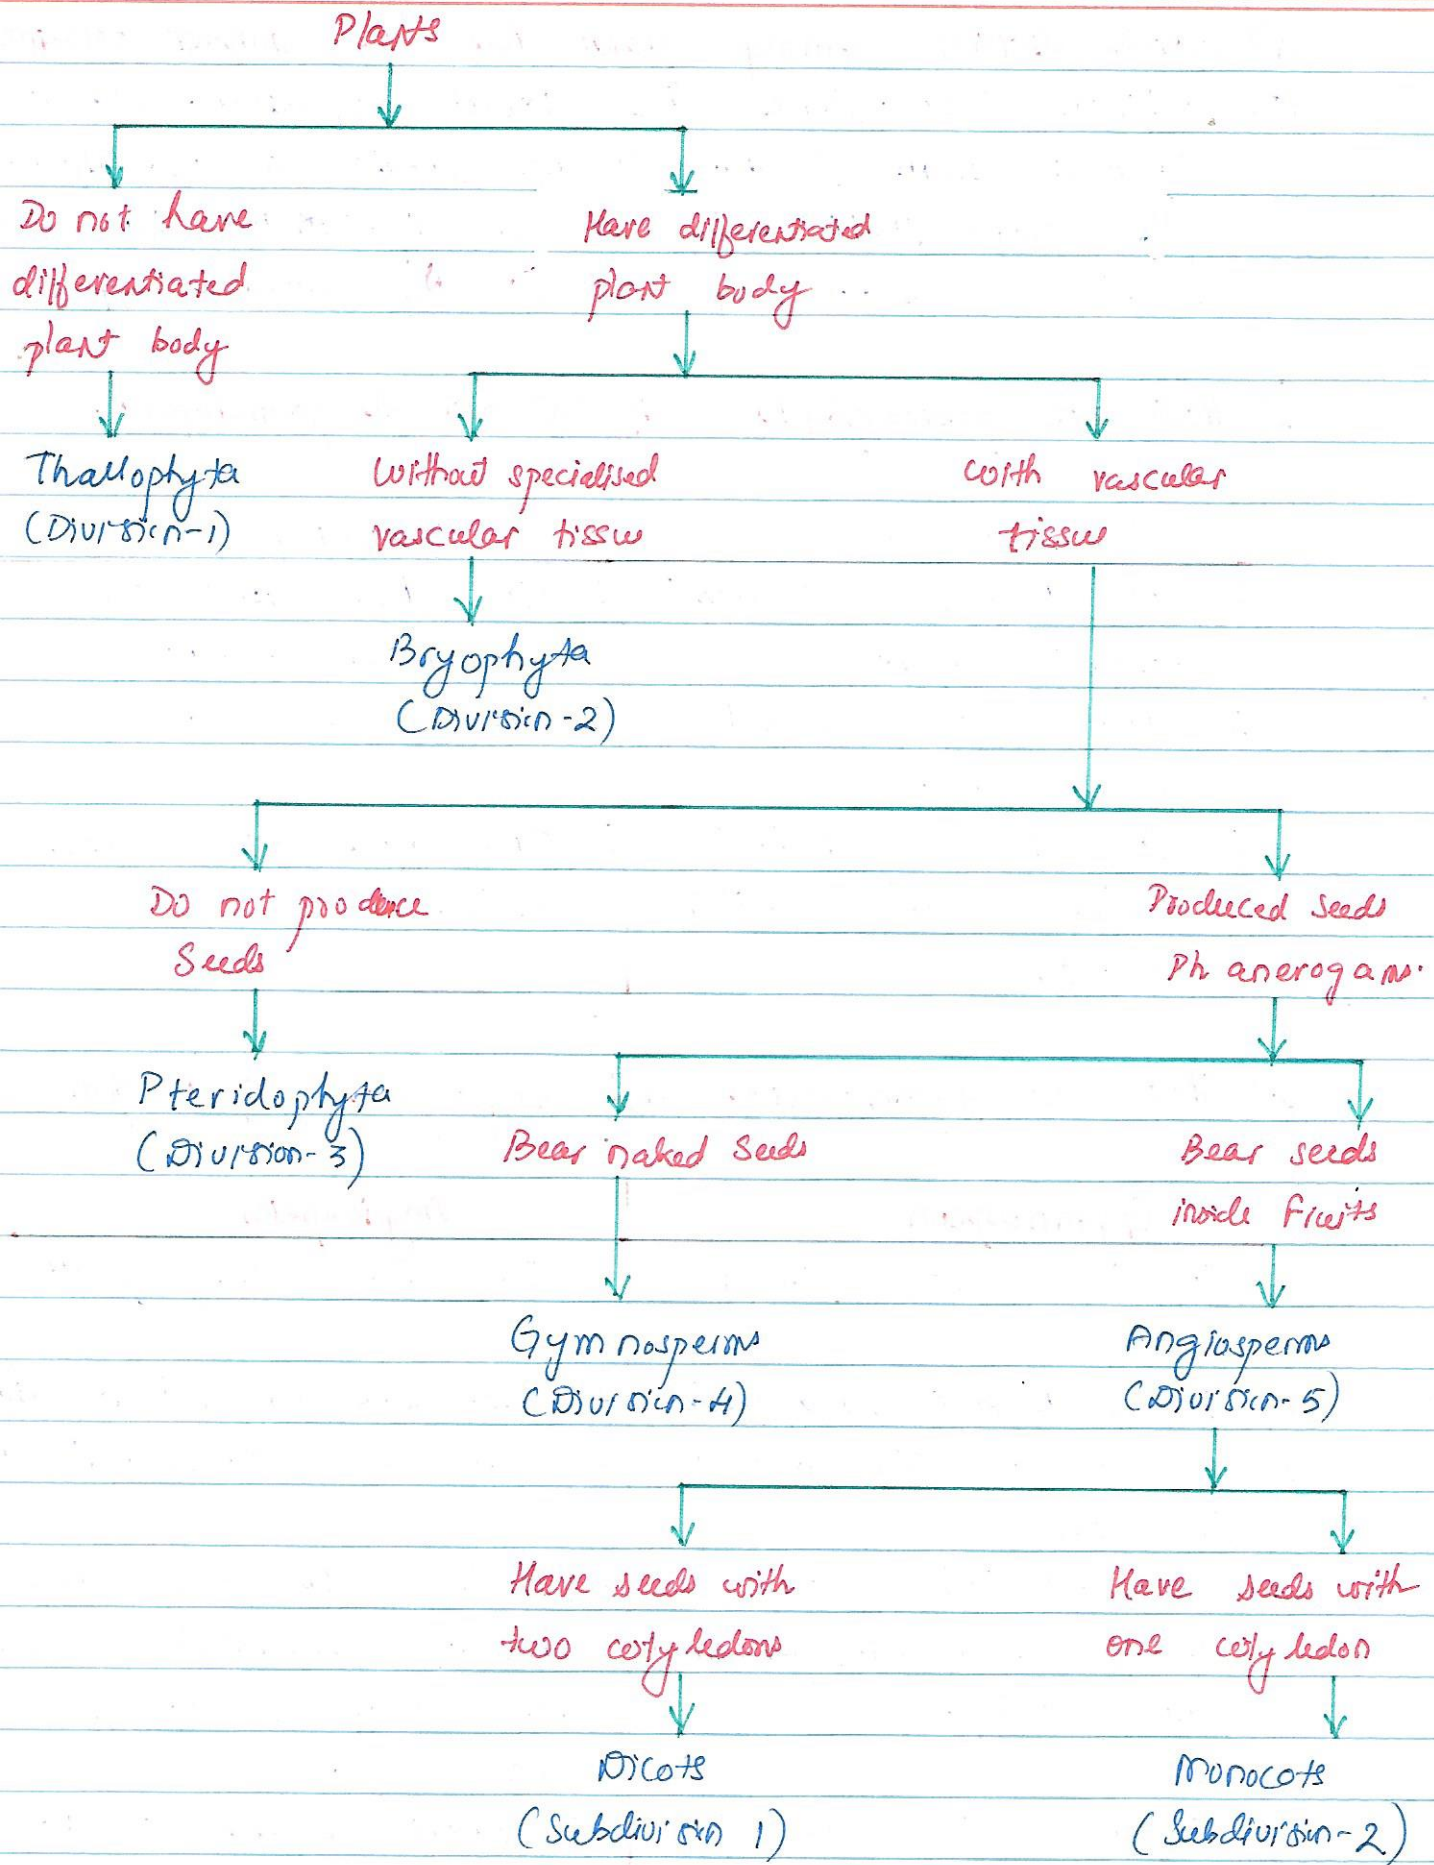 Plants
Do not have
differentiated
plant body
Have differentiated
plant body
Thallophyta
(Division-1)
Without specialised
vascular tissue
With vascular
tissue
Bryophyta
(Division-2)
Do not produce
Seeds
Produced Seeds
Phanerogams.
Pteridophyta
(Division-3)
Bear naked Seeds
Bear seeds
inside Fruits
Gymnosperms
(Division-4)
Angiosperms
(Division-5)
Have seeds with
two cotyledons
Have seeds with
one cotyledon
Dicots
(Subdivision 1)
Monocots
(Subdivision-2)